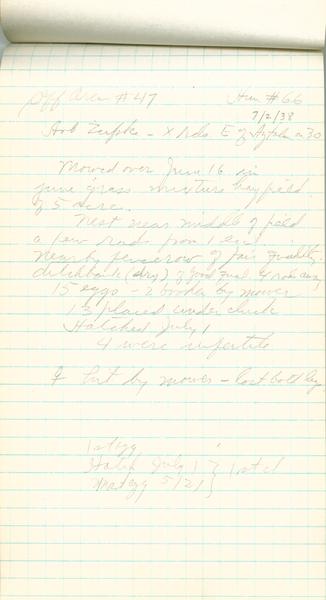 Off Area #47 Hen #66
7/2/38
Herb Zupke - X rds. E of on 30
Mowed over June 16 in
June grass mixture hayfield
of 5 acres.
Nest near middle of field
a few rods from 1 end
nearby fencerow of fair quality.
ditchbank (dry) of good qual. 4 rods away
15 eggs - 2 broken by mower
13 placed under chick
Hatched July 1
4 were infertile
♀ hit by mower - lost both legs
1st egg
Hatch July 1
Nest egg 5/21